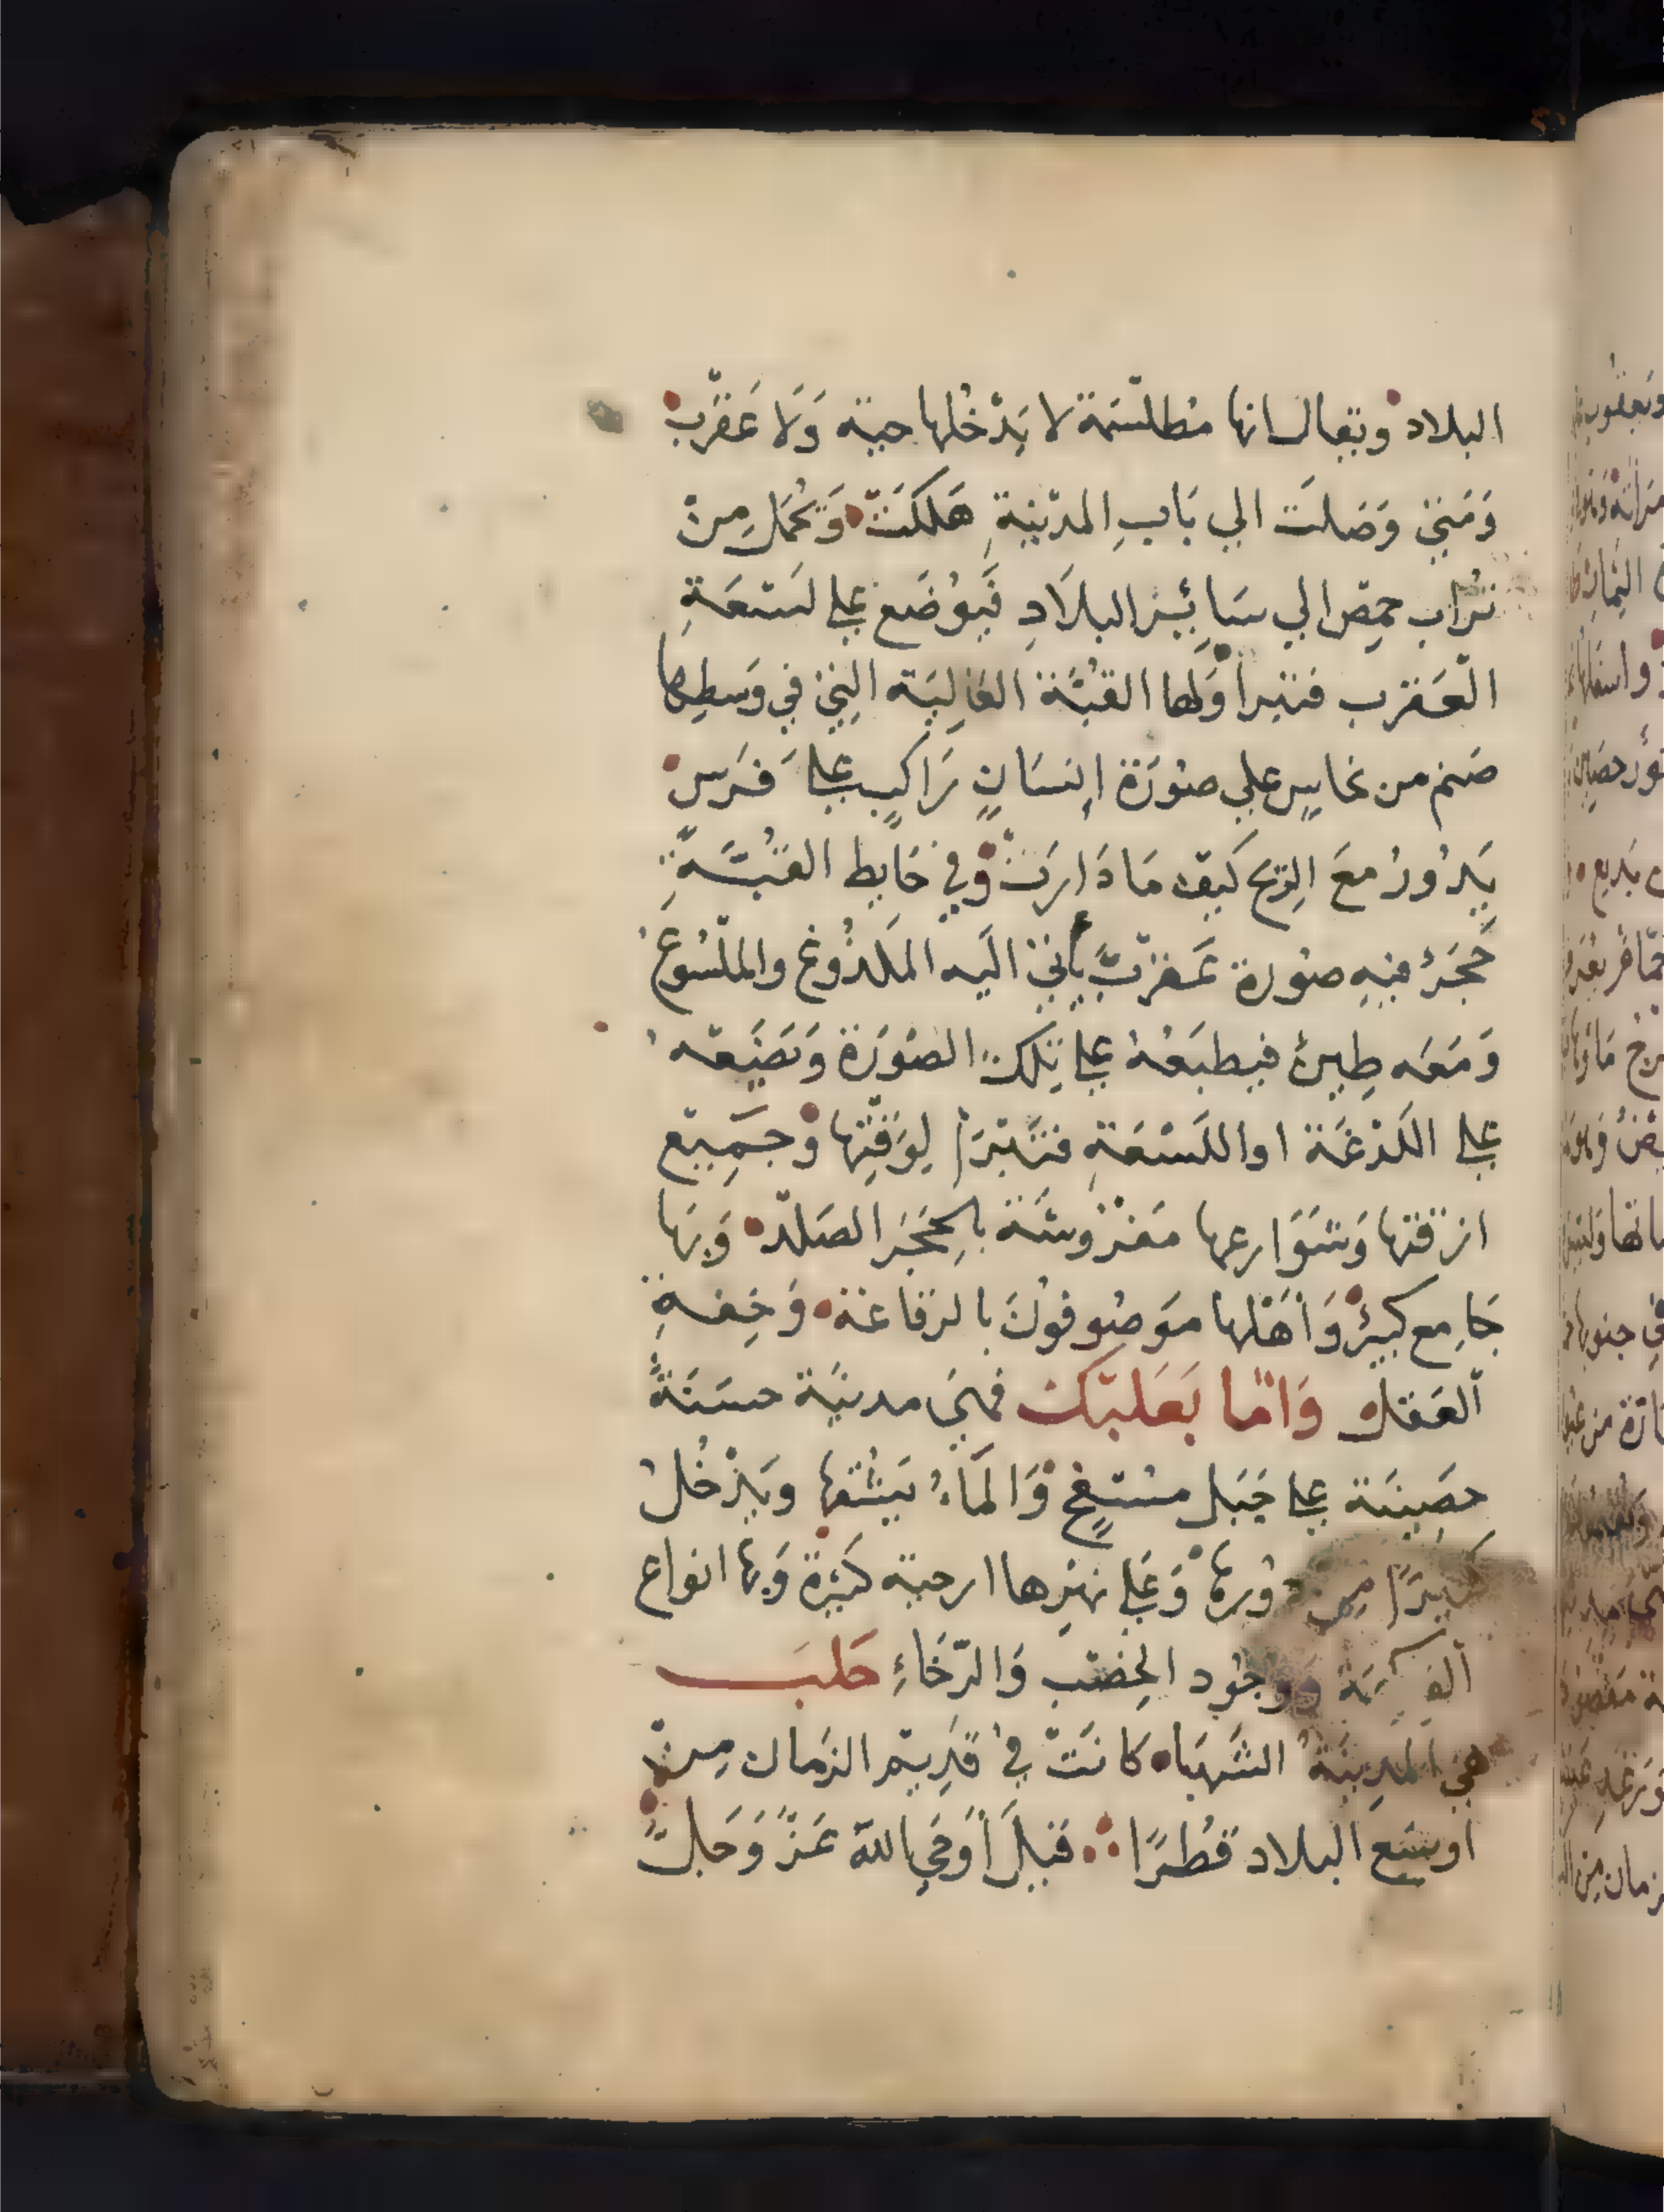 البلاد ويقال انها مطلسمة لا يَدْخُلها حية وَلا عَقْرَب
وَمَتى وَصَلَت الي بَابِ المدينةِ هَلكَتْ وَيُحمَل مِن
تُراب حمِص الي سَائِر البلَادِ فَيُوضَع على لسْعَةِ
العَقرب فتبرا وَلها القُبَّة العَالِيَة التِي في وَسطِها
صَنم من نحاسٍ علي صُورَة اِنسَانٍ رَاكِبٍ علىَ فَرَسٍ
يَدُورُ معَ الرِّيح كَيف مَا دَارَتْ وَفي حَايط القُبَّةِ
حَجَرٌ فيهِ صُورة عَقربٌ يأتي الَيه المَلدُوغ والملْسُوعُ
وَمَعَه طِينٌ فيطبَعُهُ على تِلكَ الصُورَة وَيَضَعه
على اللَدْغَة او اللَسْعَةِ فتَبْرَا لِوَقْتِها وَجَمِيع
ازقتها وَشَوَارعها مَفْرُوشَة بالِحَجَر الصَلْد وَبهَا
جَامِع كبيرٌ وَأهْلها مَوصُوفُونَ بالرقاعَة وَخِفةِ
العَقل وَامَّا بَعَلبَّك فهىَ مدينَة حسَنَةٌ
حصِينَة على جَبَل مسْتفِح وَالمَاءُ يَشُقها ويَدْخُلُ
كَثيرًا مِن دُورهَا وَعَلى نهَرِها ارحية كثيرَة وَبها انواع
الفـ كهَة وَوجُود الخِصْب وَالرَّخَاءِ حَلَبَ
هيَ المدِينَة الشَهبَاء كانَتْ في قَدِيم الزمان مِنْ
اوسَع البلاد قُطرًا قيلَ أَوحَي الله عَزَّ وَجَلَّ